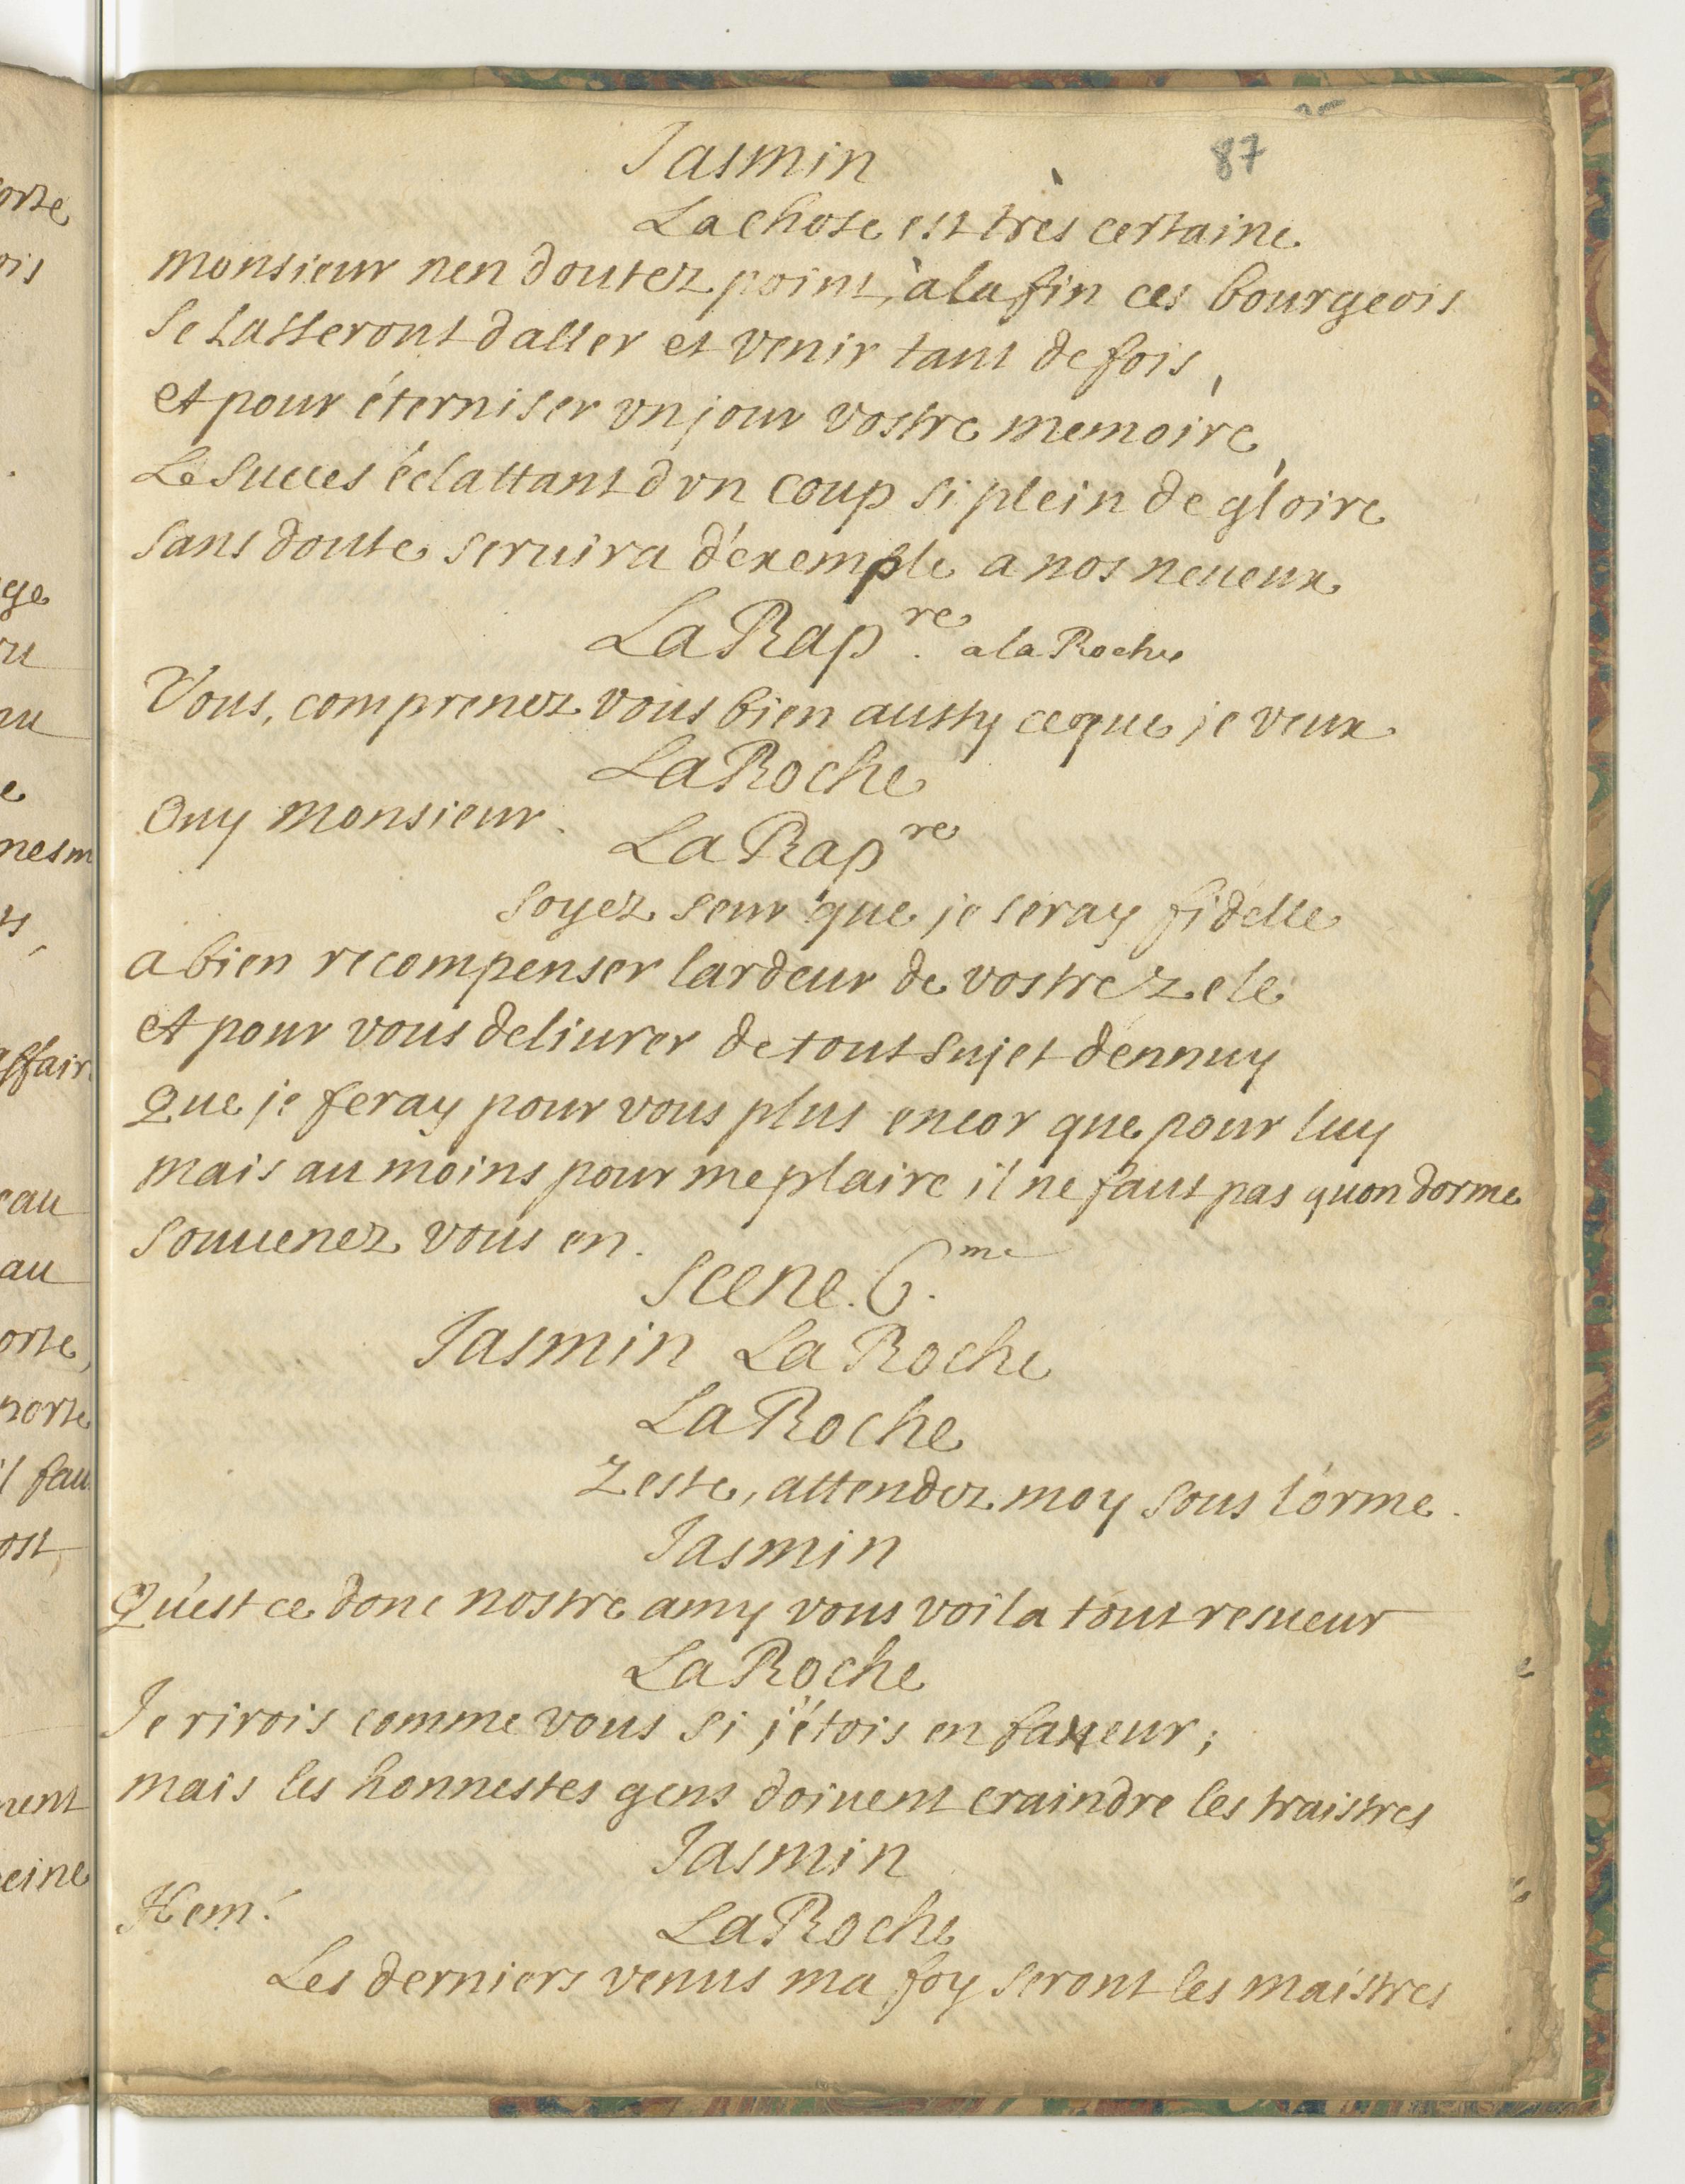 87
Jasmin
La chose est très certaine
monsieur nen doutez point, à la fin ces bourgeois
se lasseront daller et venir tant de fois,
et pour éterniser vn jour vostre memoire,
Le succes éclattant dvn coup si plein de gloire
sans doute seruira d'exemple a nos neueux
La Rap.re a la Roche
Vous, comprenez vous bien aussy ce que je veux
La Roche
Ouy monsieur.
La Rapre
soyez seur que je seray fidelle
a bien recompenser lardeur de vostre zele
et pour vous deliurer de tout sujet d'ennuy
Que je feray pour vous plus encor que pour luy
mais au moins pour me plaire il ne faut pas quon dorme
souuenez vous en.
Scene. 6.me
Jasmin La Roche
La Roche
Zeste, attendez moy sous l'orme.
Jasmin
Qu'est ce donc nostre amy vous voila tout resueur
La Roche
Je rirois comme vous si j'étois en faueur;
mais les honnestes gens doiuent craindre les traistres
Jasmin
Hem!
La Roche
Les derniers venus ma foy seront les maistres
orte
ois
ge
ru
nu
e
nesm
ts,
affair
eau
au
orte,
porte
il fau
ost,
nent
eine